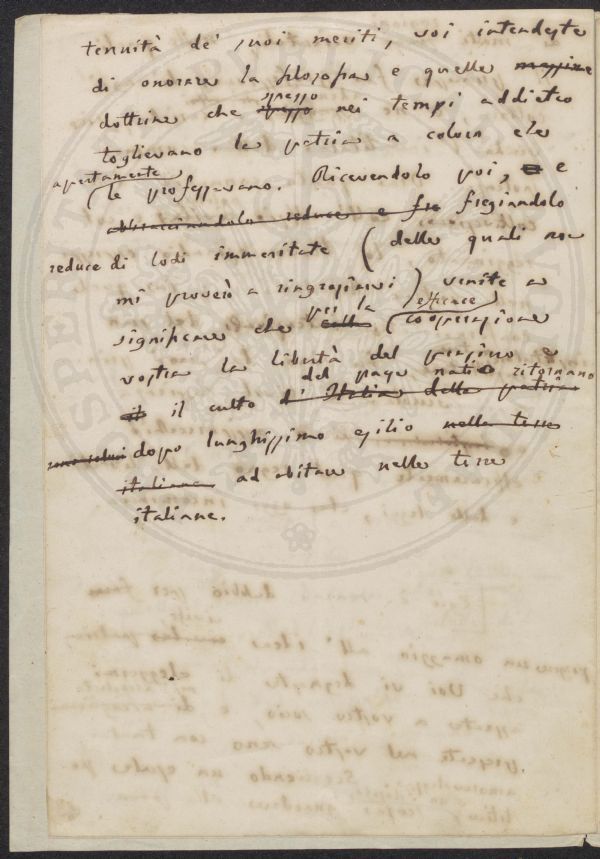 tenuità de' suoi meriti, voi intendeste
di onorare la filosofia e quelle massime
dottrine che spesso spesso nei tempi addietro
toglievano la patria a coloro che
apertamente le professavano. Ricevendolo poi, e
abbracciandolo reduce e fre fregiandolo
reduce di lodi immeritate (delle quali non
mi proverò a ringraziarvi) venite a
significare che per la efficace cooperazione
vostra la libertà del pensiero e
il culto d'Italia della patria del paese natio ritornano
dopo lunghissimo esilio nelle terre
italiane ad abitare nelle terre
italiane.